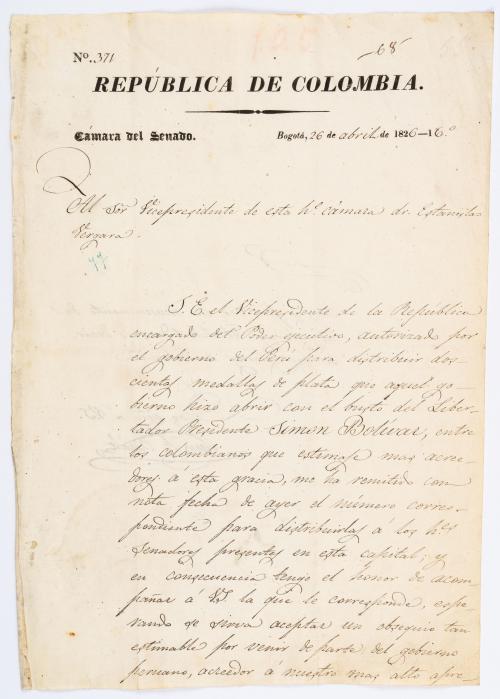 Nº. 371
68
REPÚBLICA DE COLOMBIA.
Cámara del Senado.
Bogotá, 26 de abril de 1826–16.º
Al Sor Vicepresidente de esta hᵉ. cámara dr. Estanislao
Vergara.
77
S. E. el Vicepresidente de la República
encargado del Poder ejecutivo, autorizado por
el gobierno del Perú para distribuir dos-
cientas medallas de plata que aquel go-
bierno hizo abrir con el busto del Liber-
tador Presidente Simon Bolivar, entre
los colombianos que estimase mas acree-
dores á esta gracia, me ha remitido con
nota fecha de ayer el número corres-
pondiente para distribuirlas á los hᵉˢ
senadores presentes en esta capital; y
en consecuencia tengo el honor de acom-
pañar á VS la que le corresponde, espe-
rando se sirva aceptar un obsequio tan
estimable por venir de parte del gobierno
peruano, acreedor á nuestro mas alto apre-